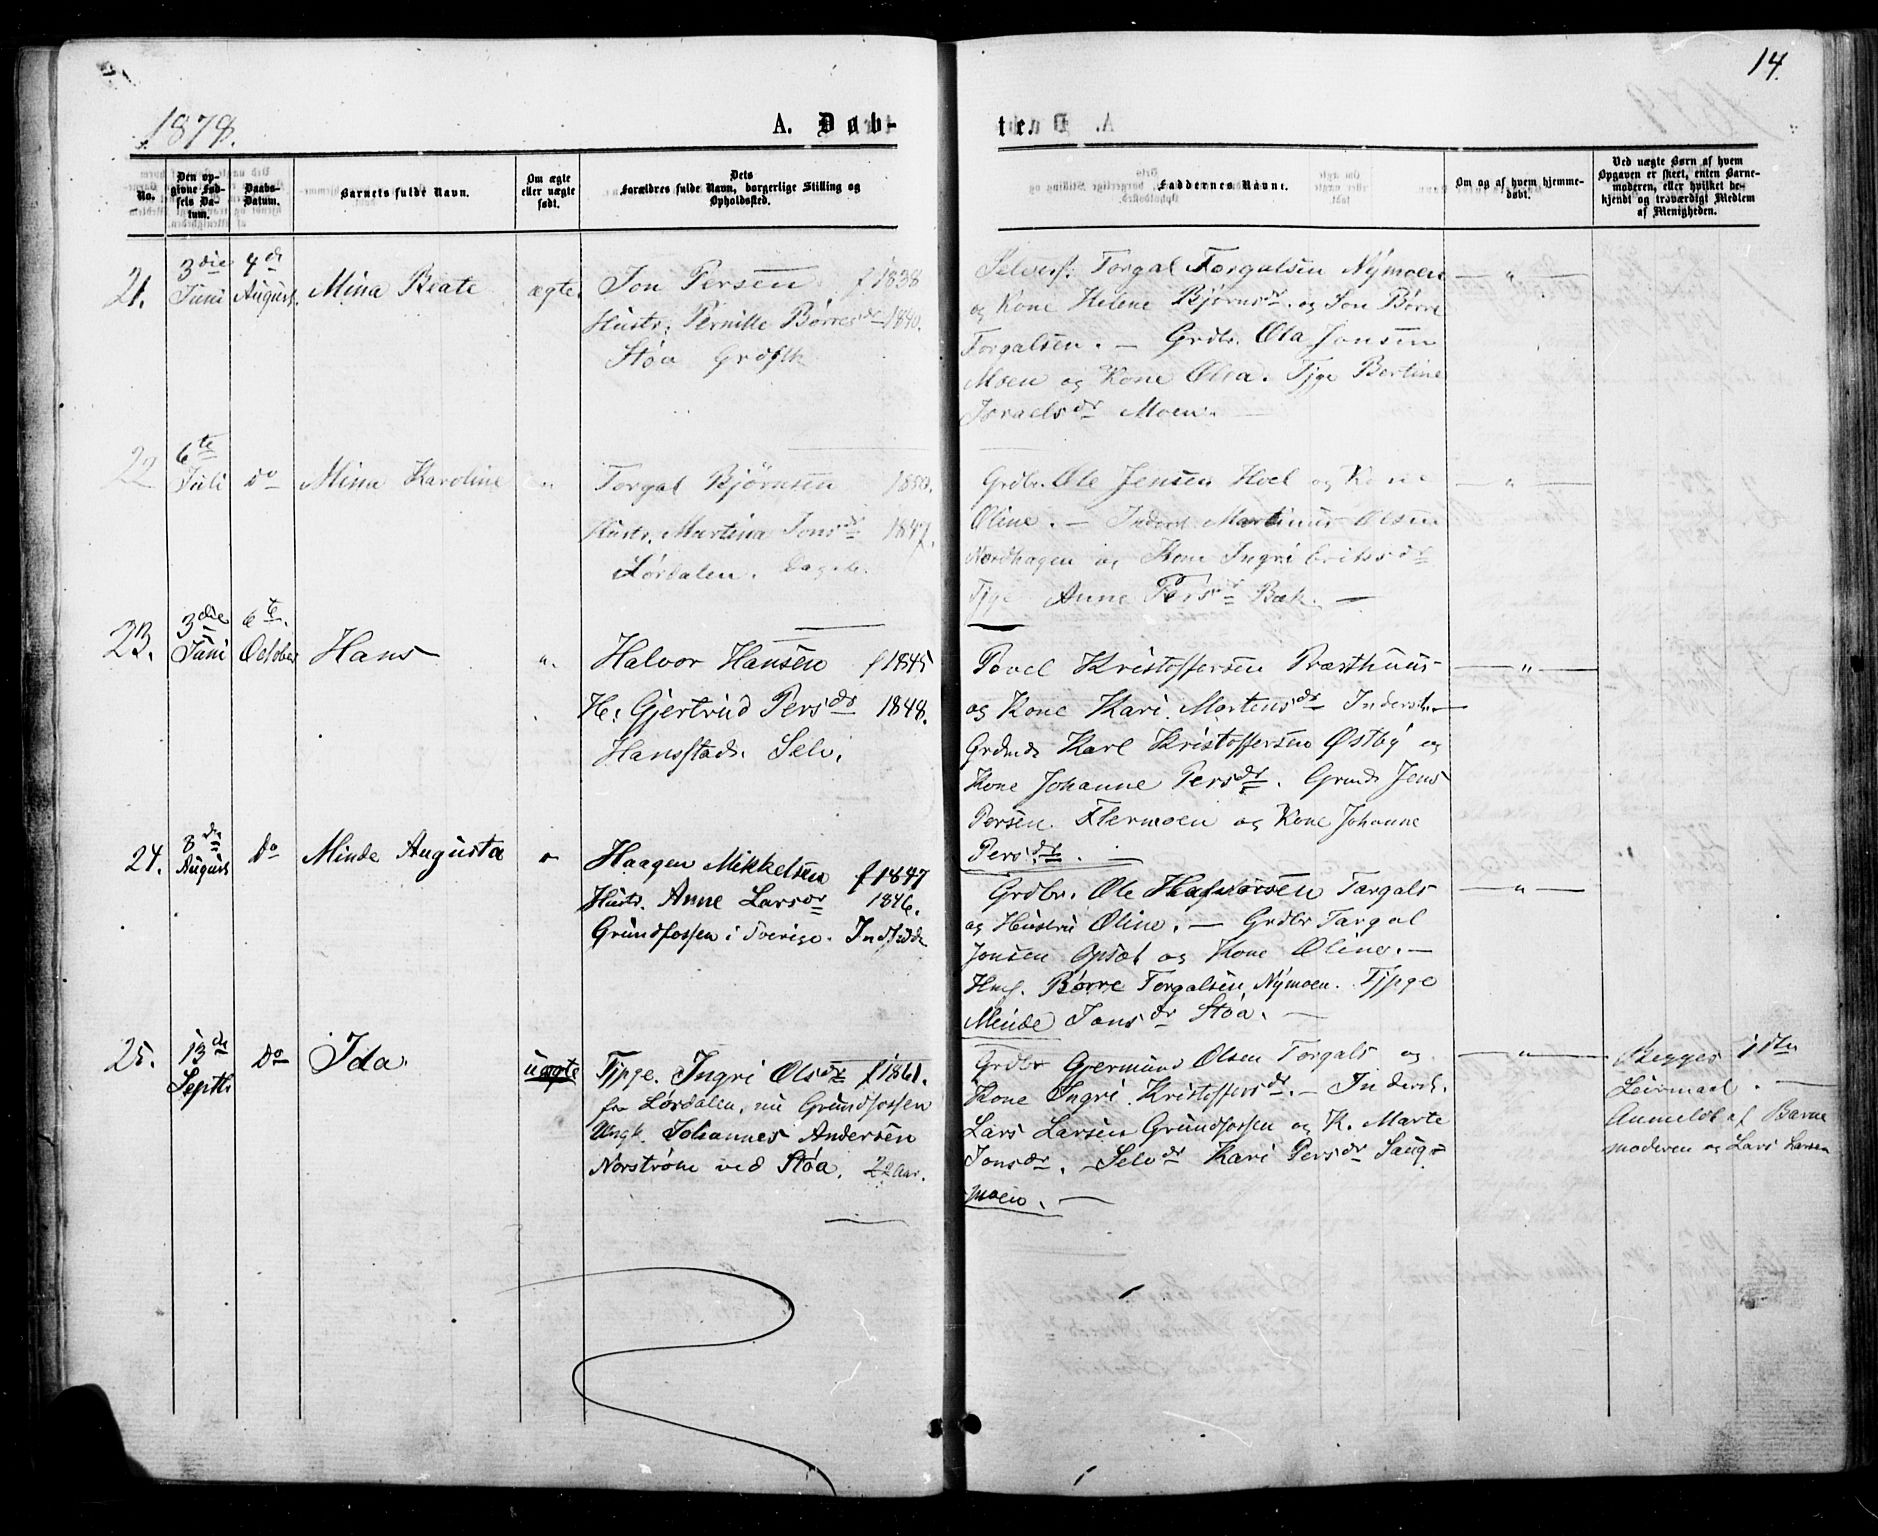 14.
1878.
A. Døb-
te.
No.
Den op-
givne Fød-
sels Da-
tum.
Daabs-
Datum.
Barnets fulde Navn.
Om ægte
eller uægte
født.
Dets
Forældres fulde Navn, borgerlige Stilling og
Opholdssted.
Faddernes Navne.
Om og af hvem hjemme-
døbt.
Ved uægte Børn af hvem
Opgaven er skeet, enten Barne-
moderen, eller hvilket be-
kjendt og troværdigt Medlem
af Menigheden.
21.
3die
Juni
4de
August.
Mina Beate
ægte.
Jon Persen f 1838
Hustr: Pernille Børresdr 1840.
Støa
Selvers. Torgal Torgalsen Nymoen
og Kone Helene Bjørnsdr. og Søn Børre
Torgalsen. — Grdbr. Ola Jonsen
Moen og Kone Olea. Tjge Bertine
Israelsdr Moen.
— " —
22
6te
Juli
Do
Mina Karoline
"
Torgal Bjørnsen
Hustr. Martina Jonsdr 1847.
Lørdalen.
Grdbr. Ole Jensen Hoel og Kone
Oline. — Inderst Martinus Olsen
Nordhagen og Kone Ingri Eriksdr
Tjge Anne Persdr Bæk. —
— " —
23.
3die
Juni
6te
October
Hans
".
Halvor Hansen f 1845
H: Gjertrud Persdr 1848.
Hansstad. Selv.
Povel Kristoffersen Præsthuus
og Kone Kari Mortensdr Inderst. —
Grdmd Karl Kristoffersen Østby og
Kone Johanne Persdr. Grmd Jens
Persen Flermoen og Kone Johanne
Persdr. —
— " —
24.
3die
August
Do
Minde Augusta
Haagen Mikkelsen f 1847
Hustr. Anne Larsdr 1846.
Grundfossen i Sverige.
Grdbr. Ole Halvorsen Torgals
og Hustru Oline. — Grdbr Torgal
Jonsen Opsæt og Kone Oline. —
Børre Torgalsen Nymoen. Tjpge
Minde Jonsdr Støa. —
— " —
25.
13de
Septbr
Do
Ida.
uægte
Tjpge. Ingri Olsdr f 1861.
fra Lørdalen, nu Grundfossen
Ungk. Johannes Andersen
Norstrøm ved Støa, 22 Aar.
Grdbr Gjermund Olsen Torgals og
Kone Ingri Kristoffersdr. — Inderst.
Lars Larsen Grundfossen og K. Marte
Jonsdr. — Selvdr Kari Persdr Saug-
moen. —
— " —
Begges 1ste
Leiermaal. —
Anmeldt af Barne
moderen og Lars Larsen